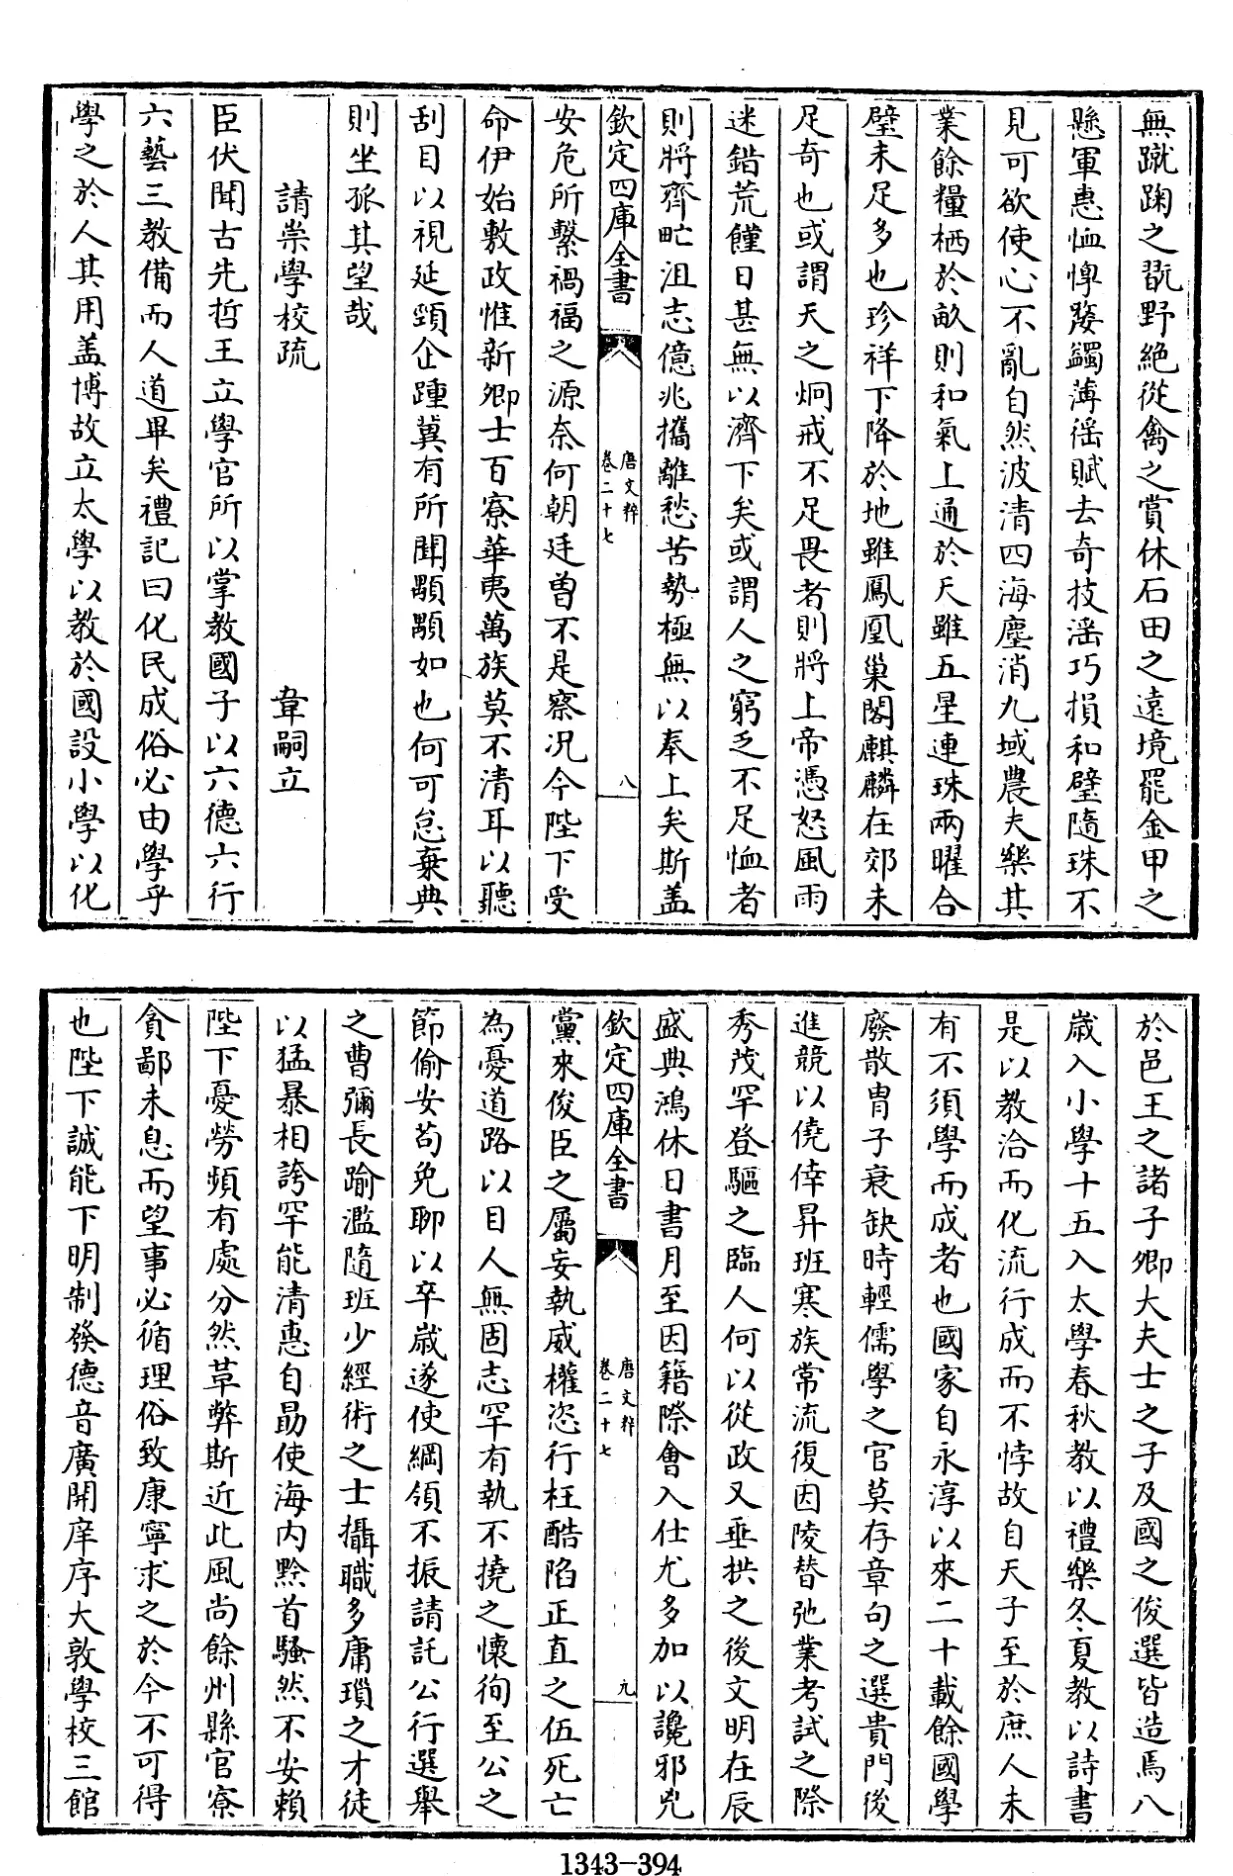 無蹴踘之翫野絶從禽之賞休石田之遠境罷金甲之
懸軍惠恤惸嫠蠲薄徭賦去奇技滛巧損和璧隨珠不
見可欲使心不亂自然波清四海塵消九域農夫樂其
業餘糧栖於畝則和氣上通於天雖五星連珠兩曜合
璧未足多也珍祥下降於地雖鳳凰巢閣麒麟在郊未
足奇也或謂天之炯戒不足畏者則將上帝憑怒風雨
迷錯荒饉日甚無以濟下矣或謂人之窮乏不足恤者
則將齊甿沮志億兆攜離愁苦勢極無以奉上矣斯盖
欽定四庫全書
唐文粹
卷二十七
八
安危所繫禍福之源奈何朝廷曽不是察况今陛下受
命伊始敷政惟新卿士百寮華夷萬族莫不清耳以聽
刮目以視延頸企踵冀有所聞顒顒如也何可怠棄典
則坐孤其望哉
請崇學校疏 韋嗣立
臣伏聞古先哲王立學官所以掌教國子以六德六行
六藝三教備而人道畢矣禮記曰化民成俗必由學乎
學之於人其用盖博故立太學以教於國設小學以化
於邑王之諸子卿大夫士之子及國之俊選皆造焉八
歲入小學十五入太學春秋教以禮樂冬夏教以詩書
是以教洽而化流行成而不悖故自天子至於庶人未
有不須學而成者也國家自永淳以來二十載餘國學
廢散胄子衰缺時輕儒學之官莫存章句之選貴門後
進競以僥倖昇班寒族常流復因陵替弛業考試之際
秀茂罕登驅之臨人何以從政又垂拱之後文明在辰
盛典鴻休日書月至因籍際會入仕尤多加以讒邪兇
欽定四庫全書
唐文粹
卷二十七
九
黨來俊臣之屬妄執威權恣行枉酷陷正直之伍死亡
為憂道路以目人無固志罕有執不撓之懷徇至公之
節偷安苟免聊以卒歲遂使綱領不振請託公行選舉
之曹彌長踰濫隨班少經術之士攝職多庸瑣之才徒
以猛暴相誇罕能清惠自勗使海内黔首騷然不安賴
陛下憂勞頻有處分然革弊斯近此風尚餘州縣官寮
貪鄙未息而望事必循理俗致康寧求之於今不可得
也陛下誠能下明制發德音廣開庠序大敦學校三館
1343-394